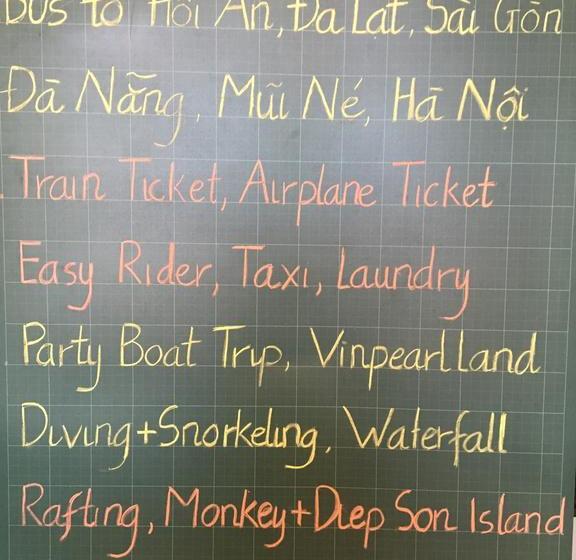 Bus to Hội An, Đà Lạt, Sài Gòn
Đā Nẵng, Mũi Né, Hā Nội
Train Ticket, Airplane Ticket
Easy Rider, Taxi, Laundry
Party Boat Trip, Vinpearl land
Diving+Snorkeling, Waterfall
Rafting, Monkey+Diep Son Island